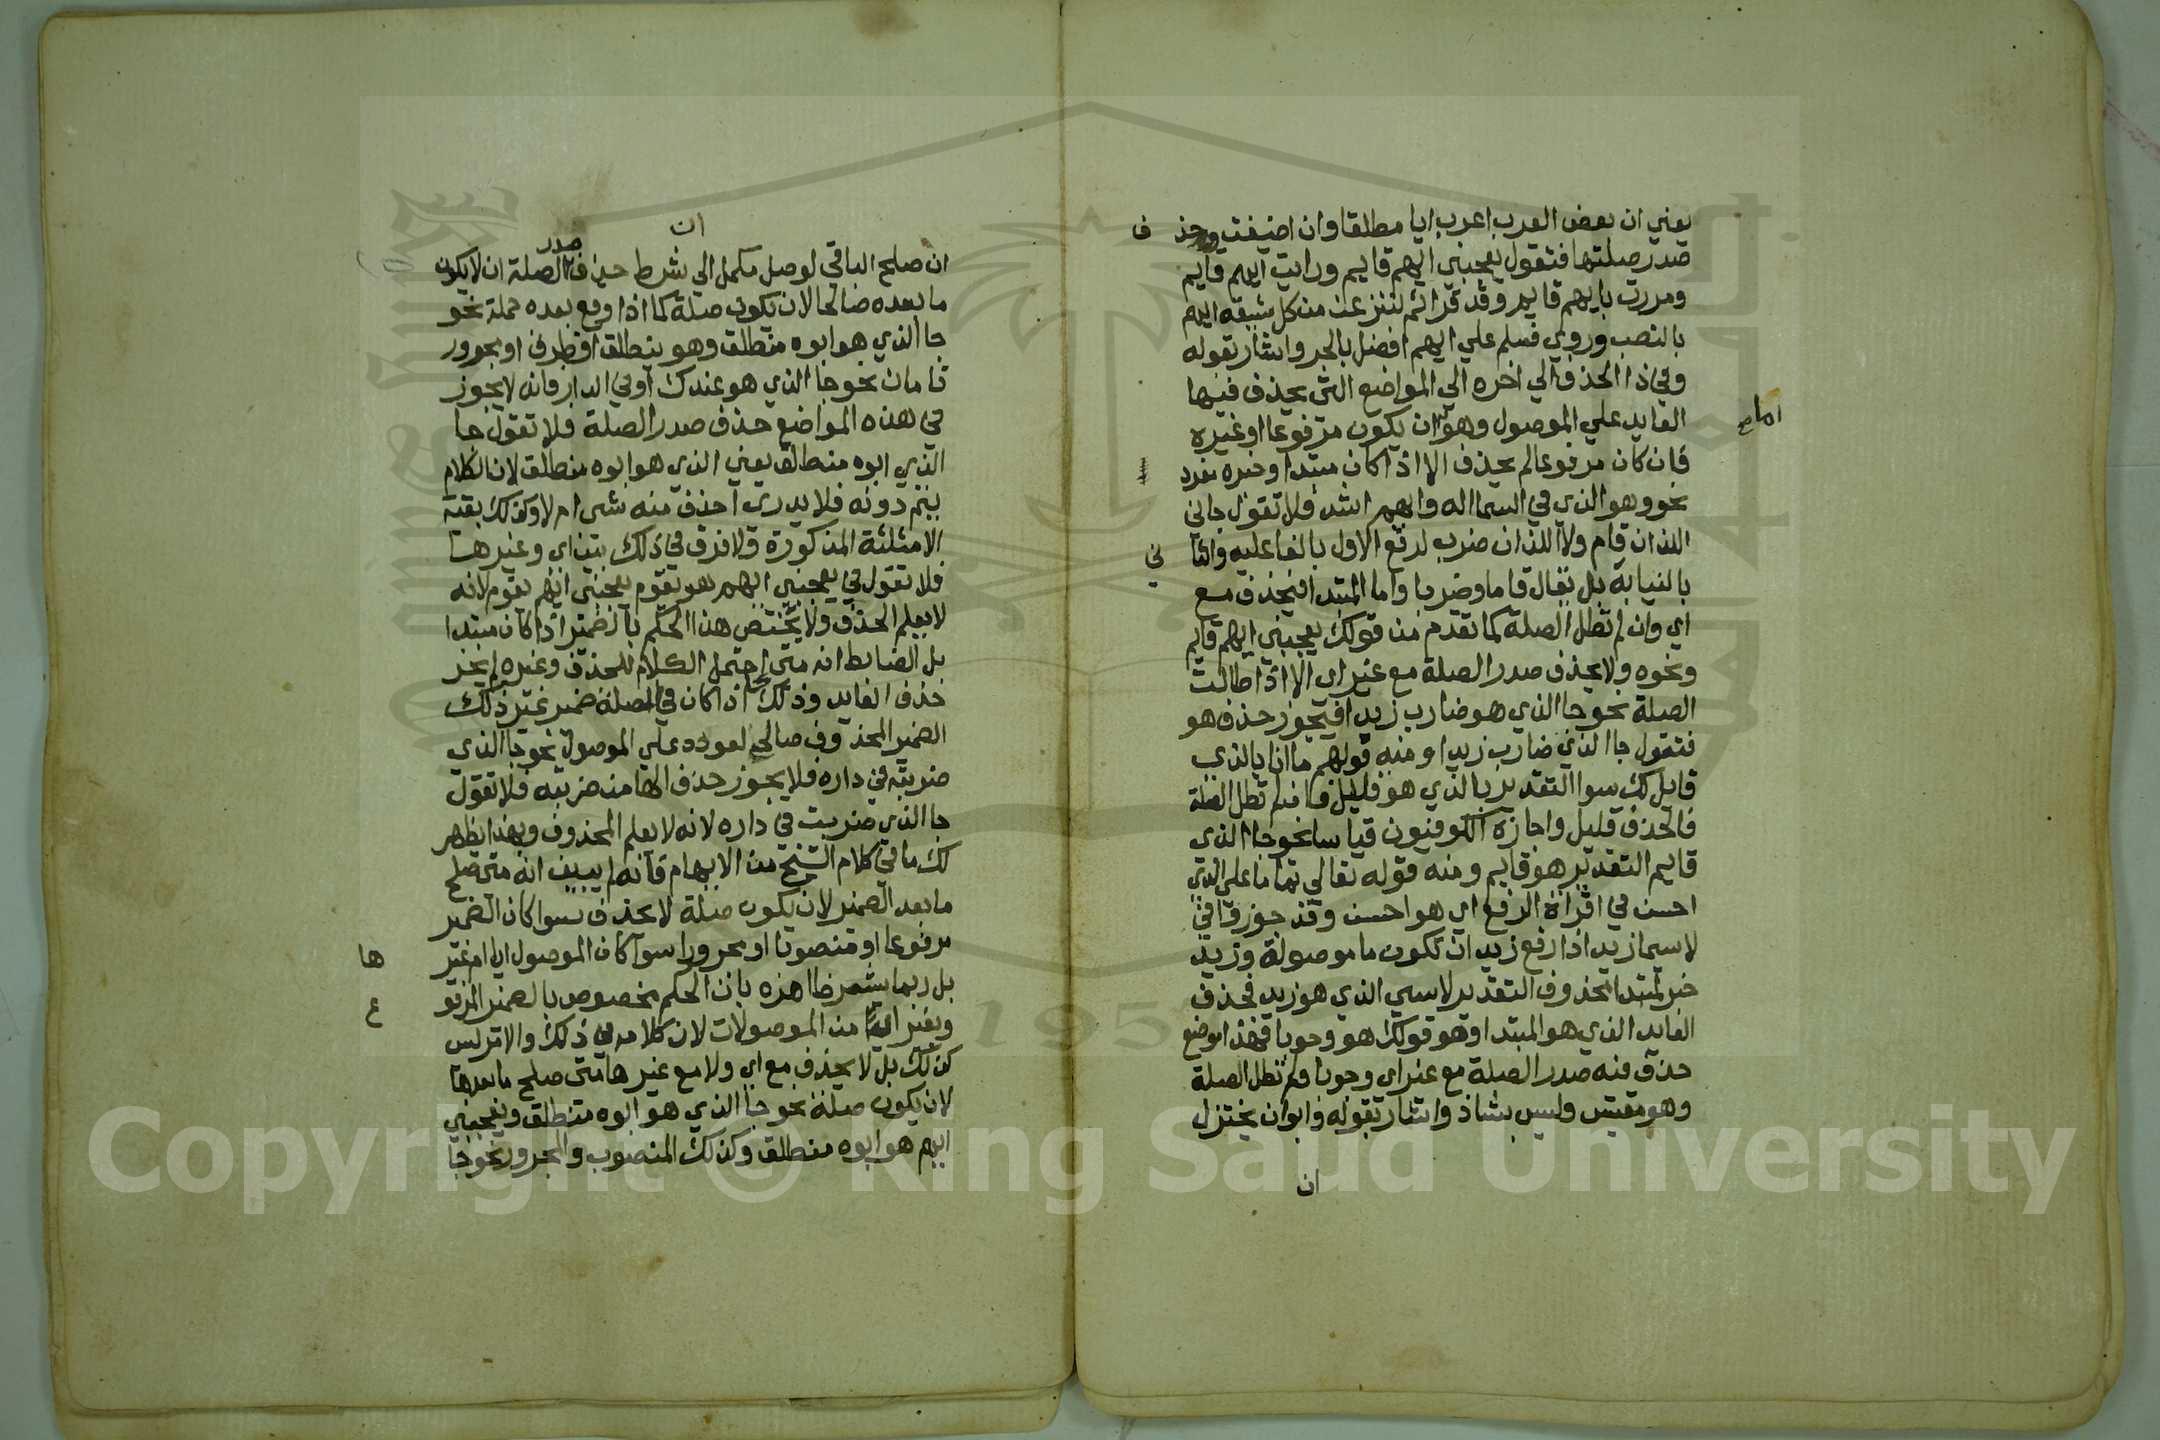 يعني ان بعض العرب اعرب ايا مطلقا وان اضيفت وحذف
صدر صلتها فتقول يعجبني ايهم قايم ورايت ايهم قايم
ومررت بايهم قايم وقد قرا ثم لننزعن من كل شيعة ايهم
بالنصب وروي فسلم علي ايهم افضل بالجر واشار بقوله
وفي ذا الحذف الي اخره الي المواضع التي يحذف فيها
العايد علي الموصول وهو اما ان يكون مرفوعا او غيره
فان كان مرفوعا لم يحذف الا اذا كان مبتدا وخبره مفرد
نحو وهو الذي في السما اله وايهم اشد فلا تقول جاني
اللذان قام ولا اللذان ضرب لرفع الاول بالفاعليه والثاني
بالنيابة بل يقال قاما وضربا واما المبتدا فيحذف مع
اي وان لم تطل الصلة كما تقدم من قولك يعجبني ايهم قايم
ونحوه ولا يحذف صدر الصلة مع غير اي الا اذا طالت
الصلة نحو جا الذي هو ضارب زيدا فيجوز حذف هو
فتقول جا الذي ضارب زيدا ومنه قولهم ما انا بالذي
قايل لك سوا التقدير بالذي هو قايل فان لم تطل الصلة
فالحذف قليل واجازه الكوفيون قياسا نحو جا الذي
قايم التقدير هو قايم ومنه قوله تعالي تماما علي الذي
احسن في اقراة الرفع اي هو احسن وقد جوزوا في
لا سيما زيد اذا رفع زيد ان تكون ما موصولة وزيد
خبر لمبتدا محذوف التقدير لاسي الذي هو زيد فحذف
العايد الذي هو المبتدا وهو قولك هو وجوبا فهذا موضع
حذف فيه صدر الصلة مع غير اي وجوبا ولم تطل الصلة
وهو مقيس وليس بشاذ واشار بقوله وابوا ان يختزل
ان
ان
ان صلح الباقي لوصل مكمل الي شرط حذف صدر الصلة ان لا يكون
ما بعده صالحا لان يكون صلة كما اذا وقع بعده جملة نحو
جا الذي هو ابوه منطلق وهو ينطلق او ظرف او مجرور
تامان نحو جا الذي هو عندك او في الدار فانه لا يجوز
في هذه المواضع حذف صدر الصلة فلا تقول جا
الذي ابوه منطلق يعني الذي هو ابوه منطلق لان الكلام
يتم دونه فلا يدري احذف منه شي ام لا وكذلك بقية
الامثلثة المذكورة ولا فرق في ذلك بين اي وغيرها
فلا تقول في يعجبني ايهم هو يقوم يعجبني ايهم يقوم لانه
لا يعلم الحذف ولا يختص هذا الحكم بالضمير اذا كان مبتدا
بل الضابط انه متي احتمل الكلام للحذف وغيره لم يجز
حذف العايد وذلك كما اذا كان في الصلة ضمير غير ذلك
الضمير المحذوف صالح لعوده علي الموصول نحو جا الذي
ضربته في داره فلا يجوز حذف الها من ضربته فلا تقول
جا الذي ضربت في داره لانه لا يعلم المحذوف وبهذا يظهر
لك ما في كلام الشيخ من الابهام فانه لم يبين انه متي صلح
ما بعد الضمير لان يكون صلة لا يحذف سوا كان الضمير
مرفوعا او منصوبا او مجرورا سوا كان الموصول ايا ام غيرها
بل ربما يشعر ظاهره بان الحكم مخصوص بالضمير المرفوع
وبغير اي من الموصولات لان كلامه في ذلك والامر ليس
كذلك بل لا يحذف مع اي ولا مع غيرها متي صلح ما بعدها
لان يكون صلة نحو جا الذي هو ابوه منطلق ويعجبني
ايهم هو ابوه منطلق وكذلك المنصوب والمجرور نحو جا
Copyright © King Saud University
195